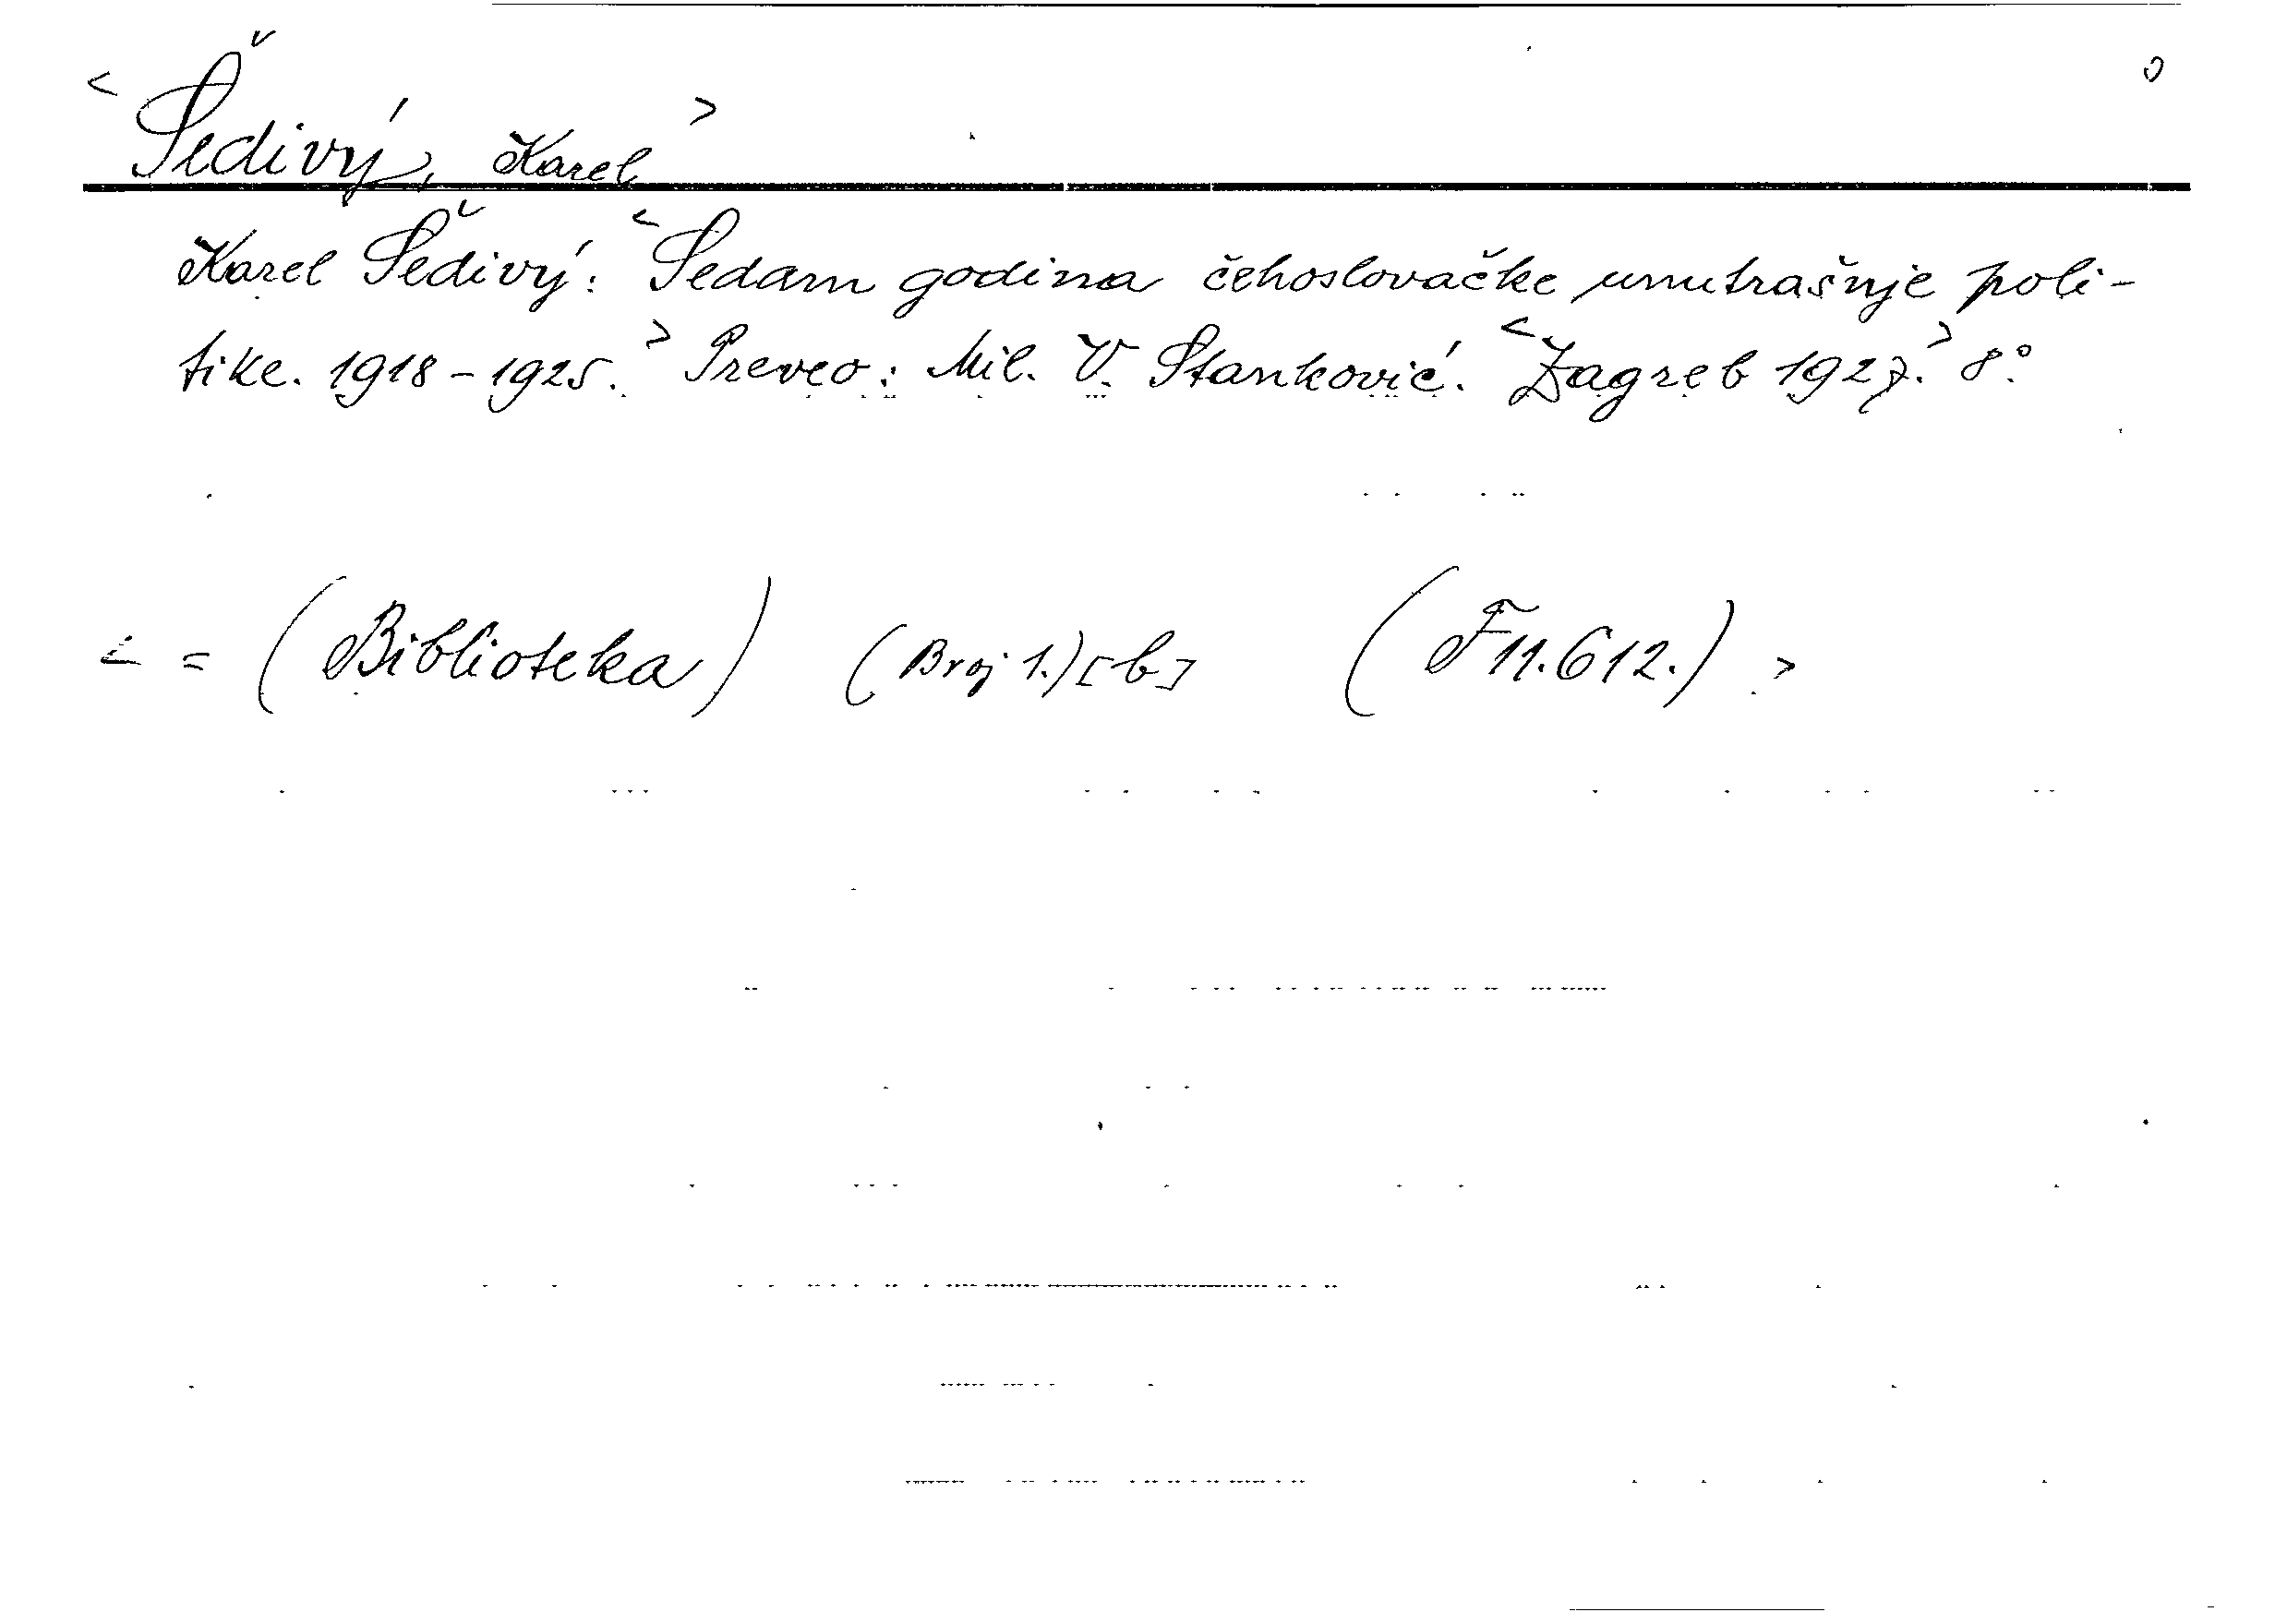 < Šedivý, Karel >
Karel Šedivý: < Sedam godina čehoslovačke unutrašnje poli-
tike. 1918-1925. > Preveo: Mil. V. Stanković. < Zagreb 1927. > 8°.
< = (Biblioteka) (Broj 1.) [b] (F 11.612.) >